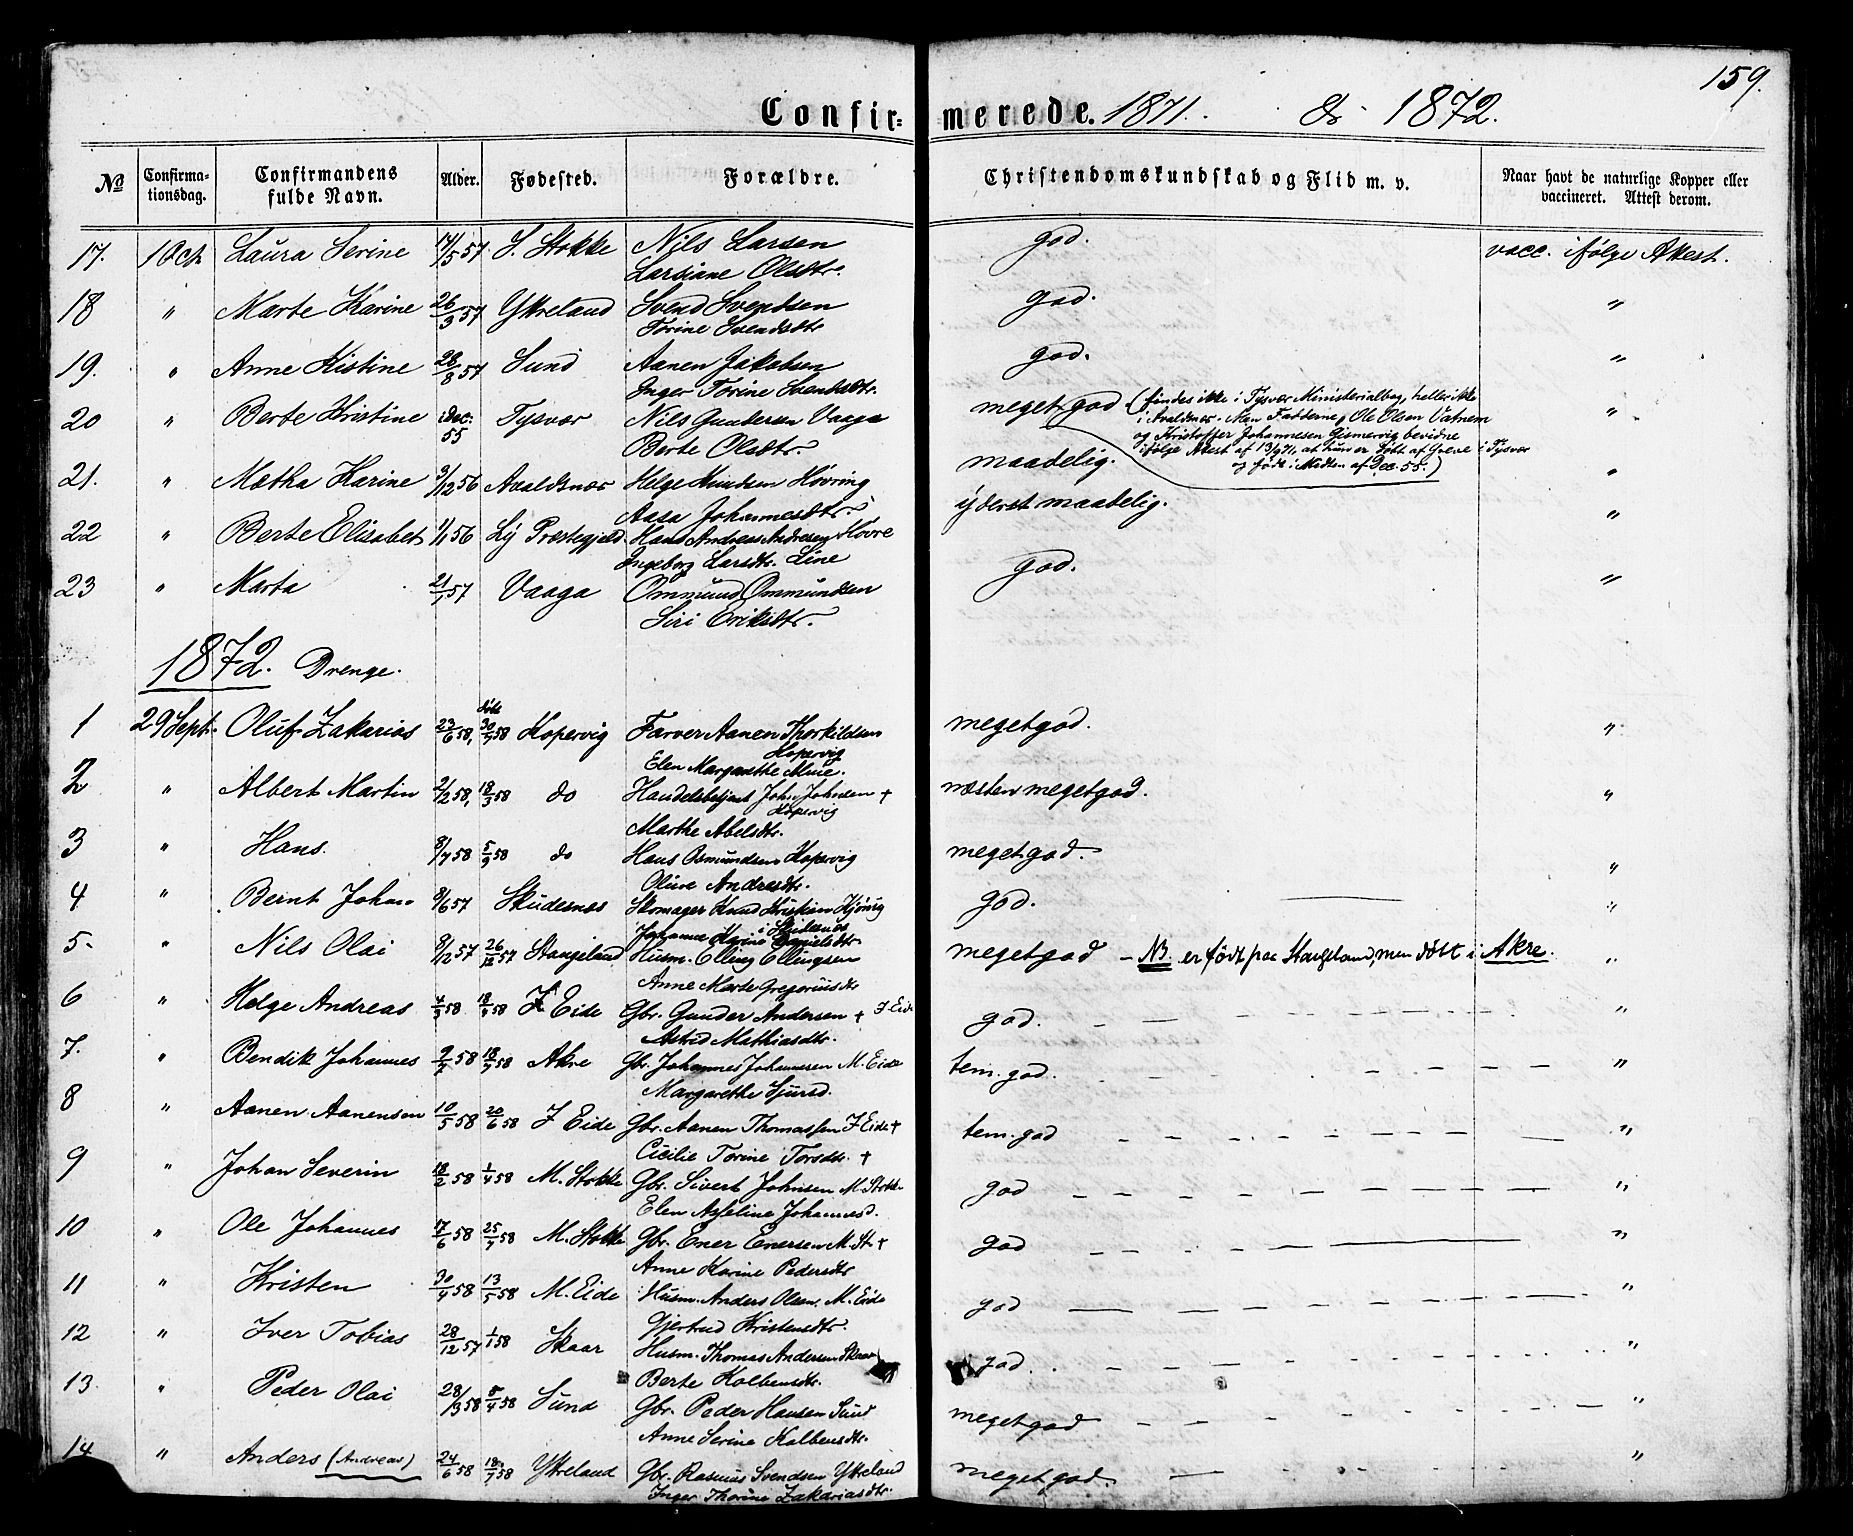 159.
Confirmerede. 1871. & 1872.
No Confirmationsdag. Confirmandens fulde Navn. Alder. Fødested. Forældre. Christendomskundskab og Flid m. v. Naar havt de naturlige Kopper eller vaccineret. Attest derom.
17. 1 Oct. Laura Serine 14/5 57 S. Stokke Nils Larsen god. vacc. ifølge Attest.
Larsiane Olsdtr.
18 " Marte Karine 26/3 57 Ytreland Svend Svendsen god. "
Torine Svendsdtr
19. " Anne Kistine 28/8 57 Sund Aanen Jakobsen god. "
Inger Torine Svendsdtr.
20 " Berte Kristine Dec. 55 Tysvær Nils Gundersen Vaaga meget god (findes ikke i Tysvær Ministerialbog, heller ikke "
i Avaldsnes. Men Fadderne, Ole Olsen Vatnem
og Kristoffer Johannesen Gismervig bevidne
ifølge Attest af 13/9 71, at hun er døbt af Greve i Tysvær
og født i Midten af Dec. 55.)
Berte Olsdtr.
21. " Mætha Karine 3/12 56 Avaldsnes Helge Knudsen Høvring maadelig. "
Aasa Johannesdtr.
22 " Berte Elisabet 1/1 56 Ly Prestegjeld. Hans Andreas Andresen Hovre yderst maadelig. "
Ingeborg Larsdtr. Line
23 " Marta 21/1 57 Vaaga Ommund Ommundsen god. "
Siri Eriksdtr.
1872. Drenge.
1 29 Sept. Oluf Zakarias 23/6 58, døbt 30/7 58 Kopervig Farver Aanen Thorkildsen Kopervig megetgod. "
Elen Margrethe
2 " Albert Martin 2/2 58, 18/3 58 do Handelsbetjent John Johnsen + Kopervig næsten megetgod. "
Marthe Abelsdtr.
3 " Hans. 8/7 58 5/9 58 do Hans Osmundsen Kopervig megetgod. "
Olive Andresdtr.
4 " Bernt Johan 8/6 57 Skudesnes Skomager Knud Kristian i Skudesnes god. "
Johanne Karine Danielsdtr.
5. " Nils Olai 8/12 57 26/12 57 Stangeland Husm. Elling Ellingsen megetgod – NB. er født paa Stangeland, men døbt i Akre. "
Anne Marte Gregoriusdtr
6 " Helge Andreas 4/3 58 18/4 58 I Eide Gbr. Gunder Andersen + I Eide god. "
Astrid Mathiasdtr.
7. " Bendik Johannes 9/7 58 18/7 58 Akre Gbr. Johannes Johannesen M. Eide tem. god. "
Margarethe Sjursd.
8 " Aanen Aanensen 10/5 58 20/6 58 I Eide Gbr. Aanen Thomassen I Eide + tem. god "
Cicilie Torine Torsdtr. +
9 " Johan Severin 18/2 58 1/4 58 M. Stokke Gbr. Sivert Johnsen M. Stokke god "
Elen Asseline Johannesd.
10 " Ole Johannes 17/6 58 25/7 58 M. Stokke Gbr. Ener Enersen M. St. + god "
Anne Karine Pedersdtr
11 " Kristen 30/4 58 13/5 58 M. Eide Husm. Anders Olsen. M. Eide god "
Gjertrud Kristensdtr.
12 " Iver Tobias 28/12 57 1/1 58 Skaar Husm. Thomas Andersen Skaar god. "
Berte Kolbensdtr.
13. " Peder Olai 28/3 58 5/4 58 Sund Gbr. Peder Hansen Sund megetgod "
Anne Serine Kolbensdtr.
14 " Anders (Andreas) 24/6 58 18/7 58 Ytreland Gbr. Rasmus Svendsen Ytreland megetgod. "
Inger Thorine Zakariasdtr.